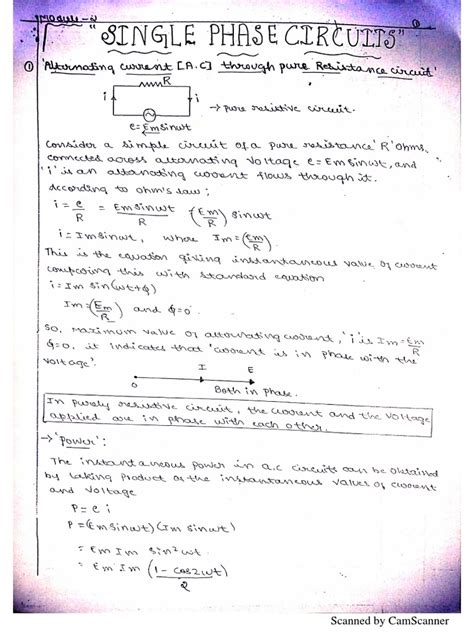 Module - 2
"SINGLE PHASE CIRCUITS"
① 'Alternating current [A.C] through pure Resistance circuit'
R
i
i
→ pure resistive circuit.
e = Em sinωt
Consider a simple circuit of a pure resistance 'R' ohms,
connected across alternating voltage e = Em sinωt, and
'i' is an alternating current flows through it.
According to ohm's law;
i = e/R = Em sinωt/R (Em/R) sinωt
i = Im sinωt, where Im = (Em/R)
This is the equation giving instantaneous value of current
comparing this with standard equation
i = Im sin(ωt+ϕ)
Im = (Em/R) and ϕ=0
So, maximum value of alternating current, 'i' is Im = Em/R
ϕ=0, it indicates that 'current is in phase with the
voltage'.
I E
O
Both in phase.
In purely resistive circuit, the current and the voltage
applied are in phase with each other.
→ 'power':
The instantaneous power in a.c circuits can be obtained
by taking product of the instantaneous values of current
and voltage
P = e i
P = (Em sinωt) (Im sinωt)
= Em Im sin²ωt
= Em Im (1 - cos2ωt)/2
Scanned by CamScanner